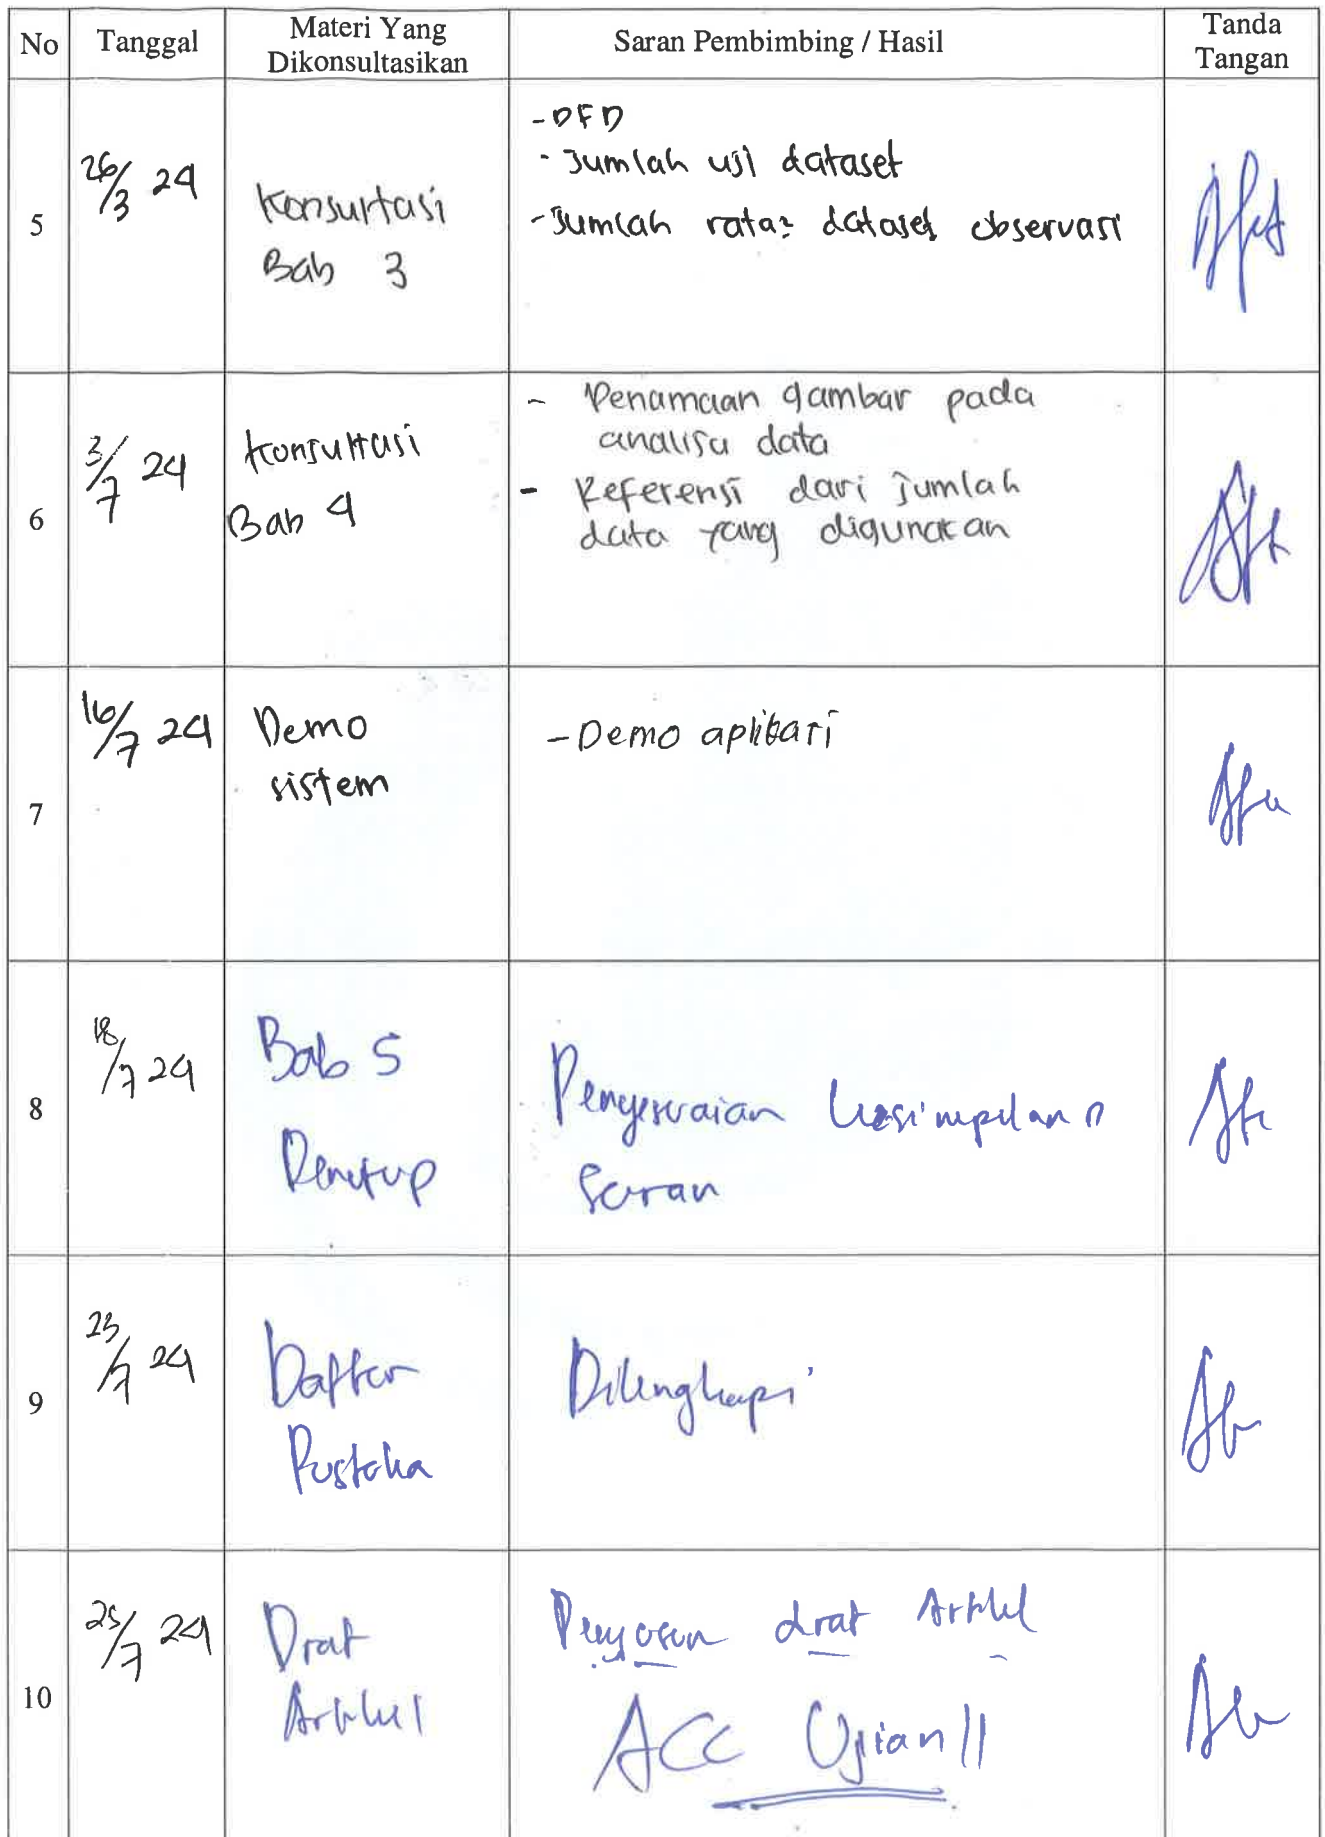 No Tanggal Materi Yang Dikonsultasikan Saran Pembimbing / Hasil Tanda Tangan
5 26/3 24 Konsultasi
Bab 3
-DFD
- Jumlah uji dataset
- Jumlah rata2 dataset observasi
6 3/7 24 Konsultasi
Bab 4
- Penamaan gambar pada
analisa data
- Referensi dari jumlah
data yang digunakan
7 16/7 24 Demo
sistem
- Demo aplikasi
8 18/7 24 Bab 5
Penutup
Penyesuaian kesimpulan
Saran
9 23/7 24 Daftar
Pustaka
Dilengkapi
10 25/7 24 Drat
Artikel
drat Artikel
ACC Ujian //